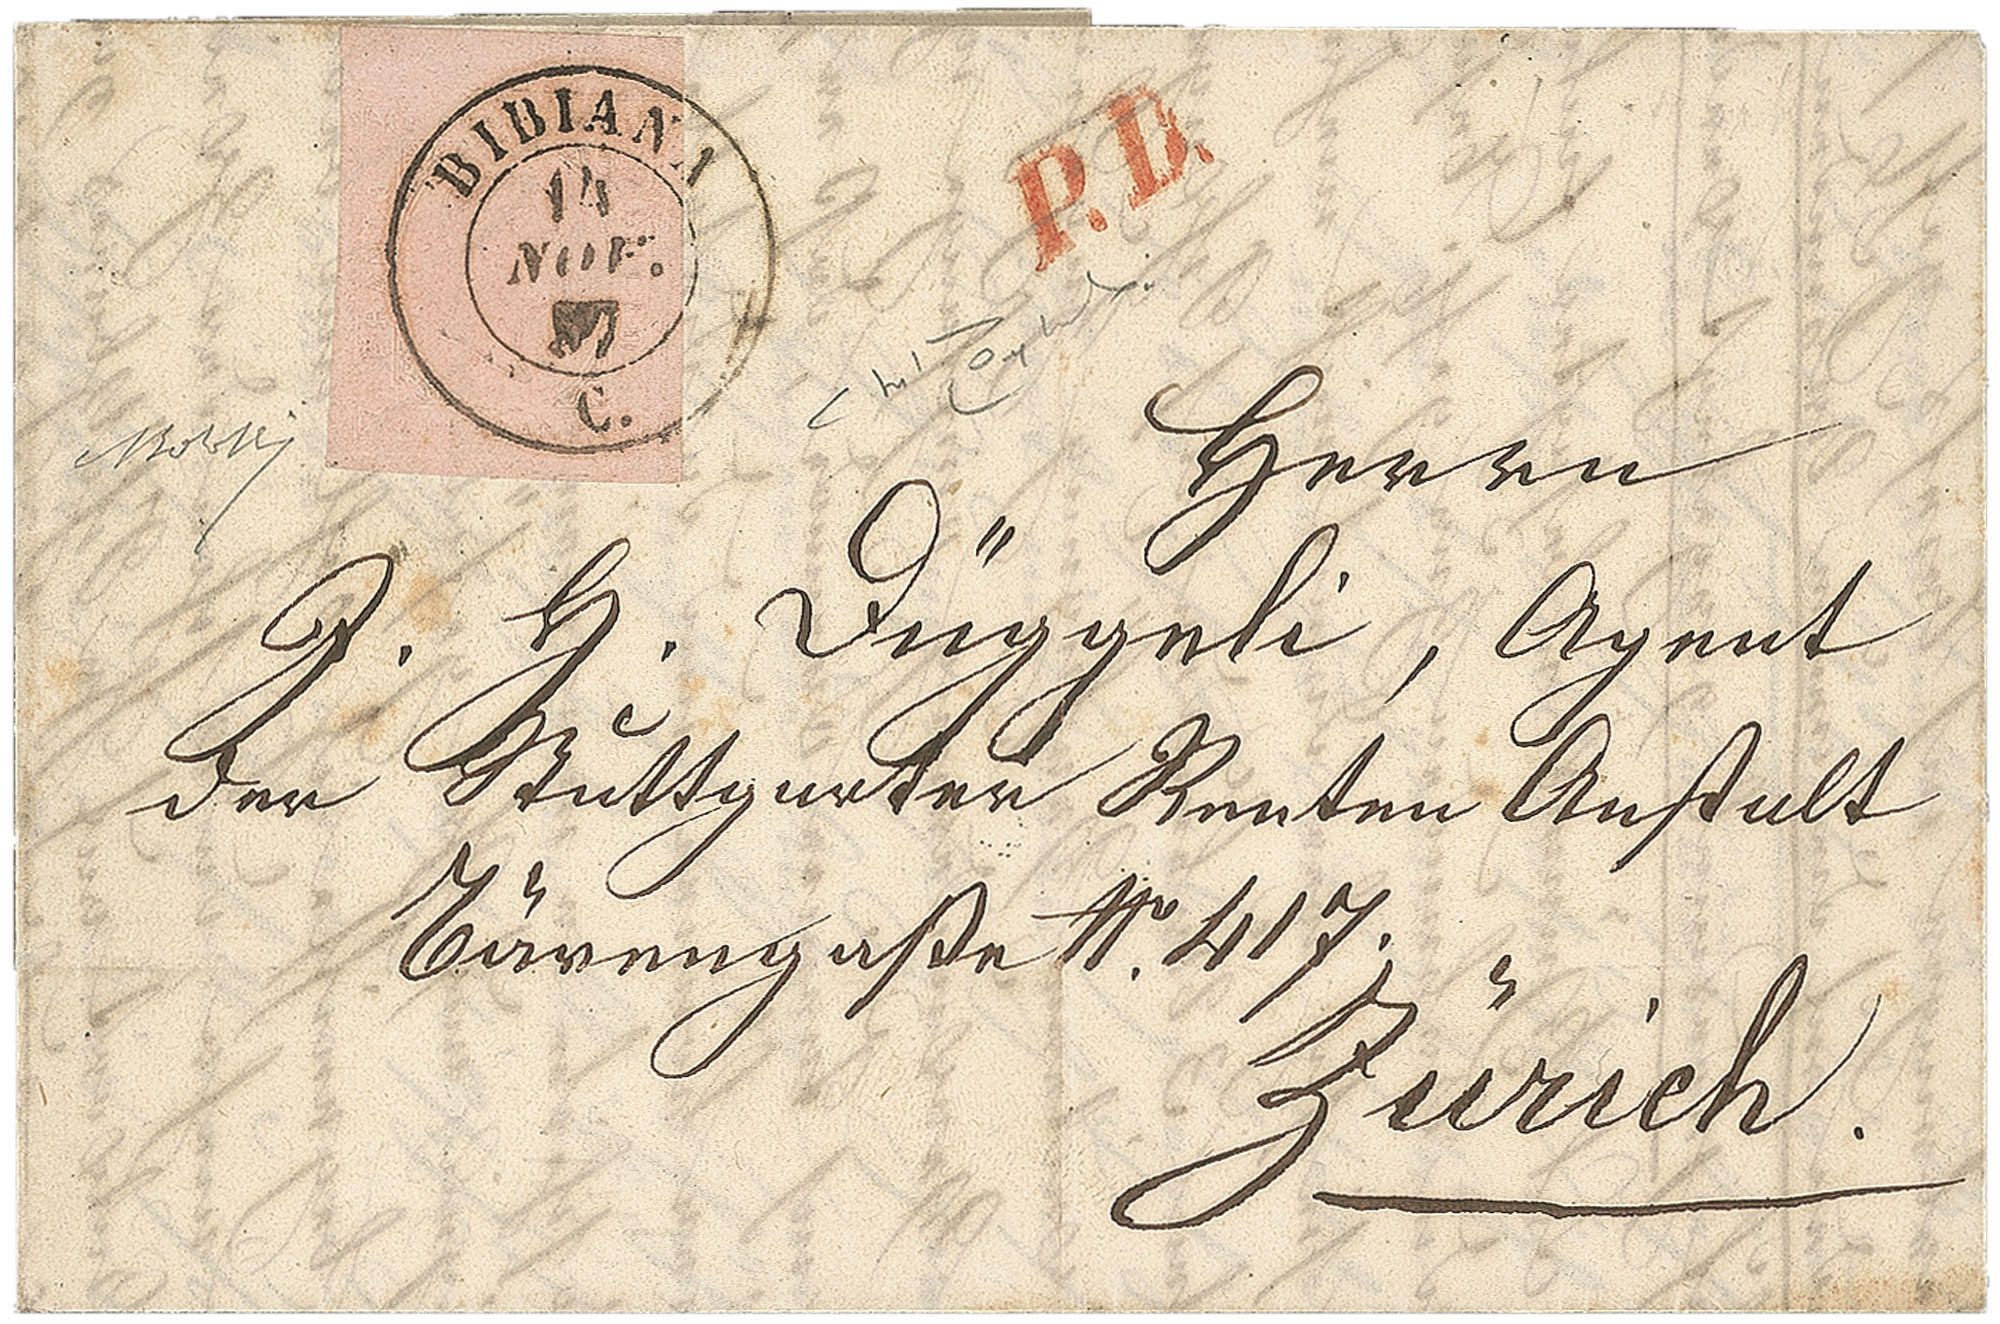 BIBIANA
14
NOV.
C.
P.D.
Herrn
J. H. Düggeli, Agent
der Stuttgarter Renten Anstalt
Bärengaße No. 417.
Zürich.